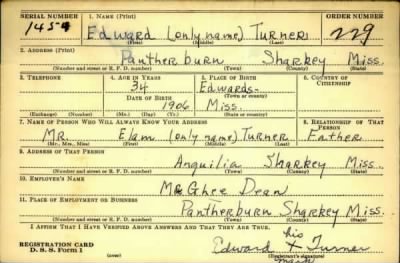 SERIAL NUMBER 1. NAME (Print) ORDER NUMBER
1454 Edward (only name) Turner 229
(First) (Middle) (Last)
2. ADDRESS (Print)
Pantherburn Sharkey Miss.
(Number and street or R. F. D. number) (Town) (County) (State)
3. TELEPHONE 4. AGE IN YEARS 5. PLACE OF BIRTH 6. COUNTRY OF CITIZENSHIP
34 Edwards-
DATE OF BIRTH (Town or county)
1906 Miss.
(Exchange) (Number) (Mo.) (Day) (Yr.) (State or country)
7. NAME OF PERSON WHO WILL ALWAYS KNOW YOUR ADDRESS 8. RELATIONSHIP OF THAT PERSON
MR. Elam (only name) Turner Father
(Mr., Mrs., Miss) (First) (Middle) (Last)
9. ADDRESS OF THAT PERSON
Anguilia Sharkey Miss.
(Number and street or R. F. D. number) (Town) (County) (State)
10. EMPLOYER'S NAME
McGhee Dean
11. PLACE OF EMPLOYMENT OR BUSINESS
Pantherburn Sharkey Miss.
(Number and street or R. F. D. number) (Town) (County) (State)
I AFFIRM THAT I HAVE VERIFIED ABOVE ANSWERS AND THAT THEY ARE TRUE.
his
REGISTRATION CARD Edward X Turner
D. S. S. Form 1 (Registrant's signature)
mark